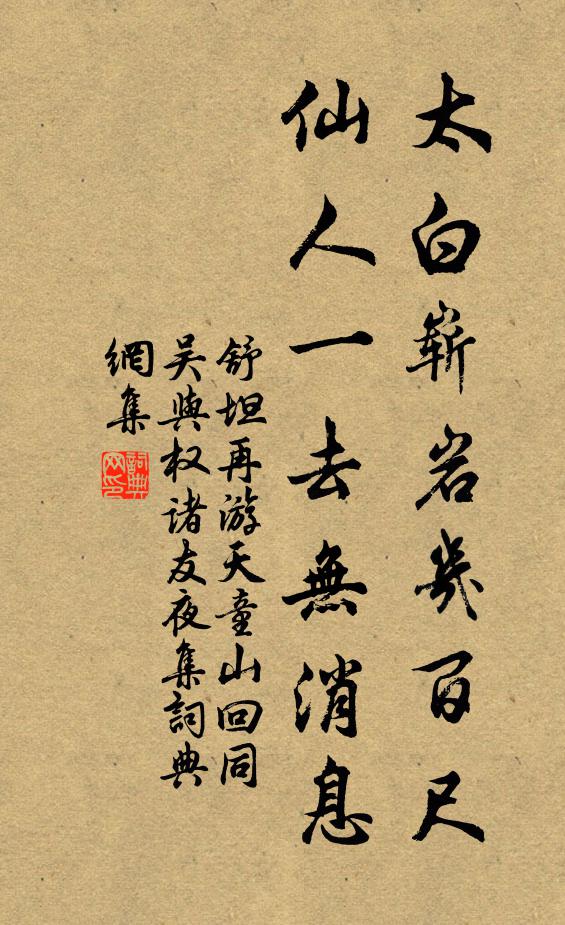 太白嶄岩幾百尺
仙人一去無消息
舒坦再游天童山回同
吴興权诸友夜集詞典
網集
詞典网印